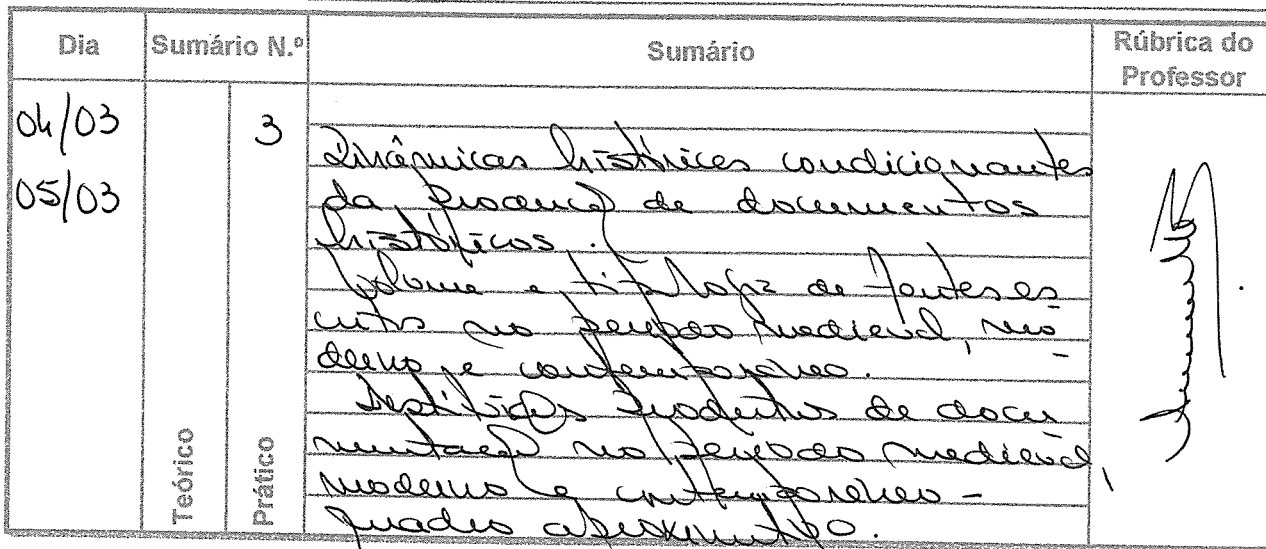 Dia Sumário N.º Sumário Rúbrica do Professor
04/03 3
05/03
Dinâmicas históricas condicionantes
da produção de documentos
históricos.
Volume e tipologia de fontes es
critas no período medieval, mo-
derno e contemporâneo.
Instituições produtoras de docu
mentação no período medieval,
moderno e contemporâneo -
quadro aproximativo.
Teórico Prático